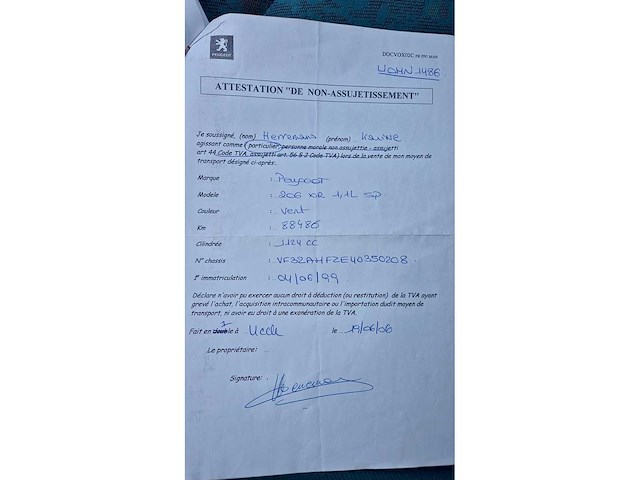 PEUGEOT
ATTESTATION "DE NON-ASSUJETISSEMENT"
Je soussigné, (nom) Herremans (prénom)
agissant comme (particulier, personne morale non assujettie - assujetti
art 44 Code TVA, assujetti art. 56 § 2 Code TVA) lors de la vente de mon moyen de
transport désigné ci-après.
Marque : Peugeot
Modele : 206 XR 1,1L 5P
Couleur : Vert
Km : 88486
Cilindrée : 1124 CC
N° chassis : VF32AHFZE40350208
1e immatriculation : 04/06/99
Déclare n'avoir pu exercer aucun droit à déduction (ou restitution) de la TVA ayant
grevé l'achat, l'acquisition intracommunautaire ou l'importation dudit moyen de
transport, ni avoir eu droit à une exonération de la TVA.
Fait en double à Uccle le 19/06/06
Le propriétaire:
Signature: